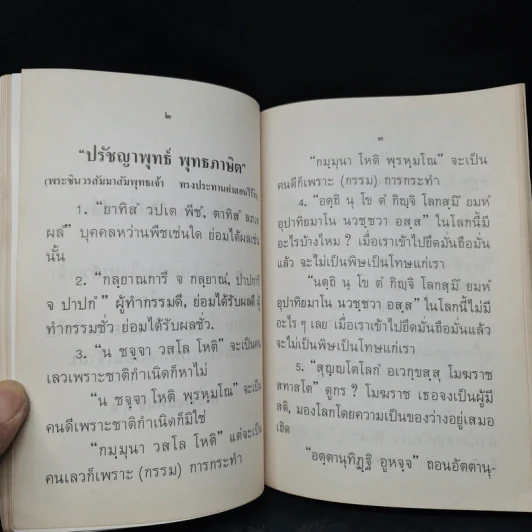 ๒
"ปรัชญาพุทธ์ พุทธภาษิต"
(พระชินวรสัมมาสัมพุทธเจ้า ทรงประทานคำสอนไว้
1. "ยาทิสํ วปเต พีชํ, ตาทิสํ ลภเต
ผลํ" บุคคลหว่านพืชเช่นใด ย่อมได้ผลเช่น
นั้น
2. "กลฺยาณการี จ กลฺยาณํ, ปาปการี
จ ปาปกํ" ผู้ทำกรรมดี, ย่อมได้รับผลดี ผู้
ทำกรรมชั่ว ย่อมได้รับผลชั่ว.
3. "น ชจฺจา วสโล โหติ" จะเป็นคน
เลวเพราะชาติกำเนิดก็หาไม่
"น ชจฺจา โหติ พฺรหฺมโณ" จะเป็น
คนดีเพราะชาติกำเนิดก็มิใช่
"กมฺมุนา วสโล โหติ" แต่จะเป็น
คนเลวก็เพราะ (กรรม) การกระทำ
๓
"กมฺมุนา โหติ พฺรหฺมโณ" จะเป็น
คนดีก็เพราะ (กรรม) การกระทำ
4. "อตฺถิ นุ โข ตํ กิญฺจิ โลกสฺมิํ ยมหํ
อุปาทิยมาโน นวชฺชวา อสฺส" ในโลกนี้มี
อะไรบ้างไหม ? เมื่อเราเข้าไปยึดมั่นถือมั่น
แล้ว จะไม่เป็นพิษเป็นโทษแก่เรา
"นตฺถิ นุ โข ตํ กิญฺจิ โลกสฺมิํ ยมหํ
อุปาทิยมาโน นวชฺชวา อสฺส" ในโลกนี้ไม่มี
อะไร ๆ เลย เมื่อเราเข้าไปยึดมั่นถือมั่นแล้ว
จะไม่เป็นพิษเป็นโทษแก่เรา
5. "สุญฺญโตโลกํ อเวกฺขสฺสุ โมฆราช
สทาสโต" ดูกร ? โมฆราช เธอจงเป็นผู้มี
สติ, มองโลกโดยความเป็นของว่างอยู่เสมอ
เถิด
"อตฺตานุทิฏฺฐิ อูหจฺจ" ถอนอัตตานุ-